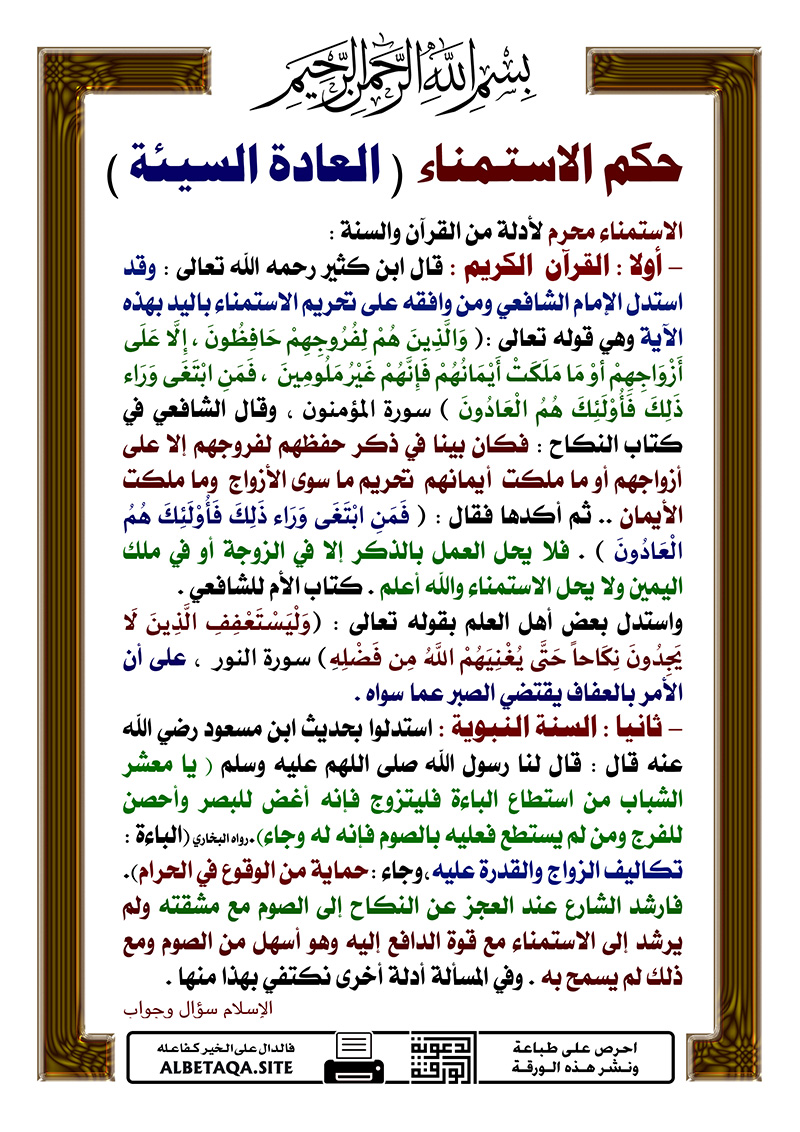 بسم الله الرحمن الرحيم
حكم الاستمناء ( العادة السيئة )
الاستمناء محرم لأدلة من القرآن والسنة :
– أولا : القرآن الكريم : قال ابن كثير رحمه الله تعالى : وقد
استدل الإمام الشافعي ومن وافقه على تحريم الاستمناء باليد بهذه
الآية وهي قوله تعالى :( وَالَّذِينَ هُمْ لِفُرُوجِهِمْ حَافِظُونَ ، إِلَّا عَلَى
أَزْوَاجِهِمْ أَوْ مَا مَلَكَتْ أَيْمَانُهُمْ فَإِنَّهُمْ غَيْرُ مَلُومِينَ ، فَمَنِ ابْتَغَى وَرَاء
ذَلِكَ فَأُوْلَئِكَ هُمُ الْعَادُونَ ) سورة المؤمنون ، وقال الشافعي في
كتاب النكاح : فكان بينا في ذكر حفظهم لفروجهم إلا على
أزواجهم أو ما ملكت أيمانهم تحريم ما سوى الأزواج وما ملكت
الأيمان .. ثم أكدها فقال : ( فَمَنِ ابْتَغَى وَرَاء ذَلِكَ فَأُوْلَئِكَ هُمُ
الْعَادُونَ ) . فلا يحل العمل بالذكر إلا في الزوجة أو في ملك
اليمين ولا يحل الاستمناء والله أعلم . كتاب الأم للشافعي .
واستدل بعض أهل العلم بقوله تعالى : (وَلْيَسْتَعْفِفِ الَّذِينَ لَا
يَجِدُونَ نِكَاحاً حَتَّى يُغْنِيَهُمْ اللَّهُ مِن فَضْلِهِ) سورة النور ، على أن
الأمر بالعفاف يقتضي الصبر عما سواه .
– ثانيا : السنة النبوية : استدلوا بحديث ابن مسعود رضي الله
عنه قال : قال لنا رسول الله صلى اللهم عليه وسلم ( يا معشر
الشباب من استطاع الباءة فليتزوج فإنه أغض للبصر وأحصن
للفرج ومن لم يستطع فعليه بالصوم فإنه له وجاء).رواه البخاري (الباءة :
تكاليف الزواج والقدرة عليه،وجاء :حماية من الوقوع في الحرام).
فارشد الشارع عند العجز عن النكاح إلى الصوم مع مشقته ولم
يرشد إلى الاستمناء مع قوة الدافع إليه وهو أسهل من الصوم ومع
ذلك لم يسمح به . وفي المسألة أدلة أخرى نكتفي بهذا منها .
الإسلام سؤال وجواب
احرص على طباعة
ونشر هذه الورقة
الدعوية
الورقة
فالدال على الخير كفاعله
ALBETAQA.SITE